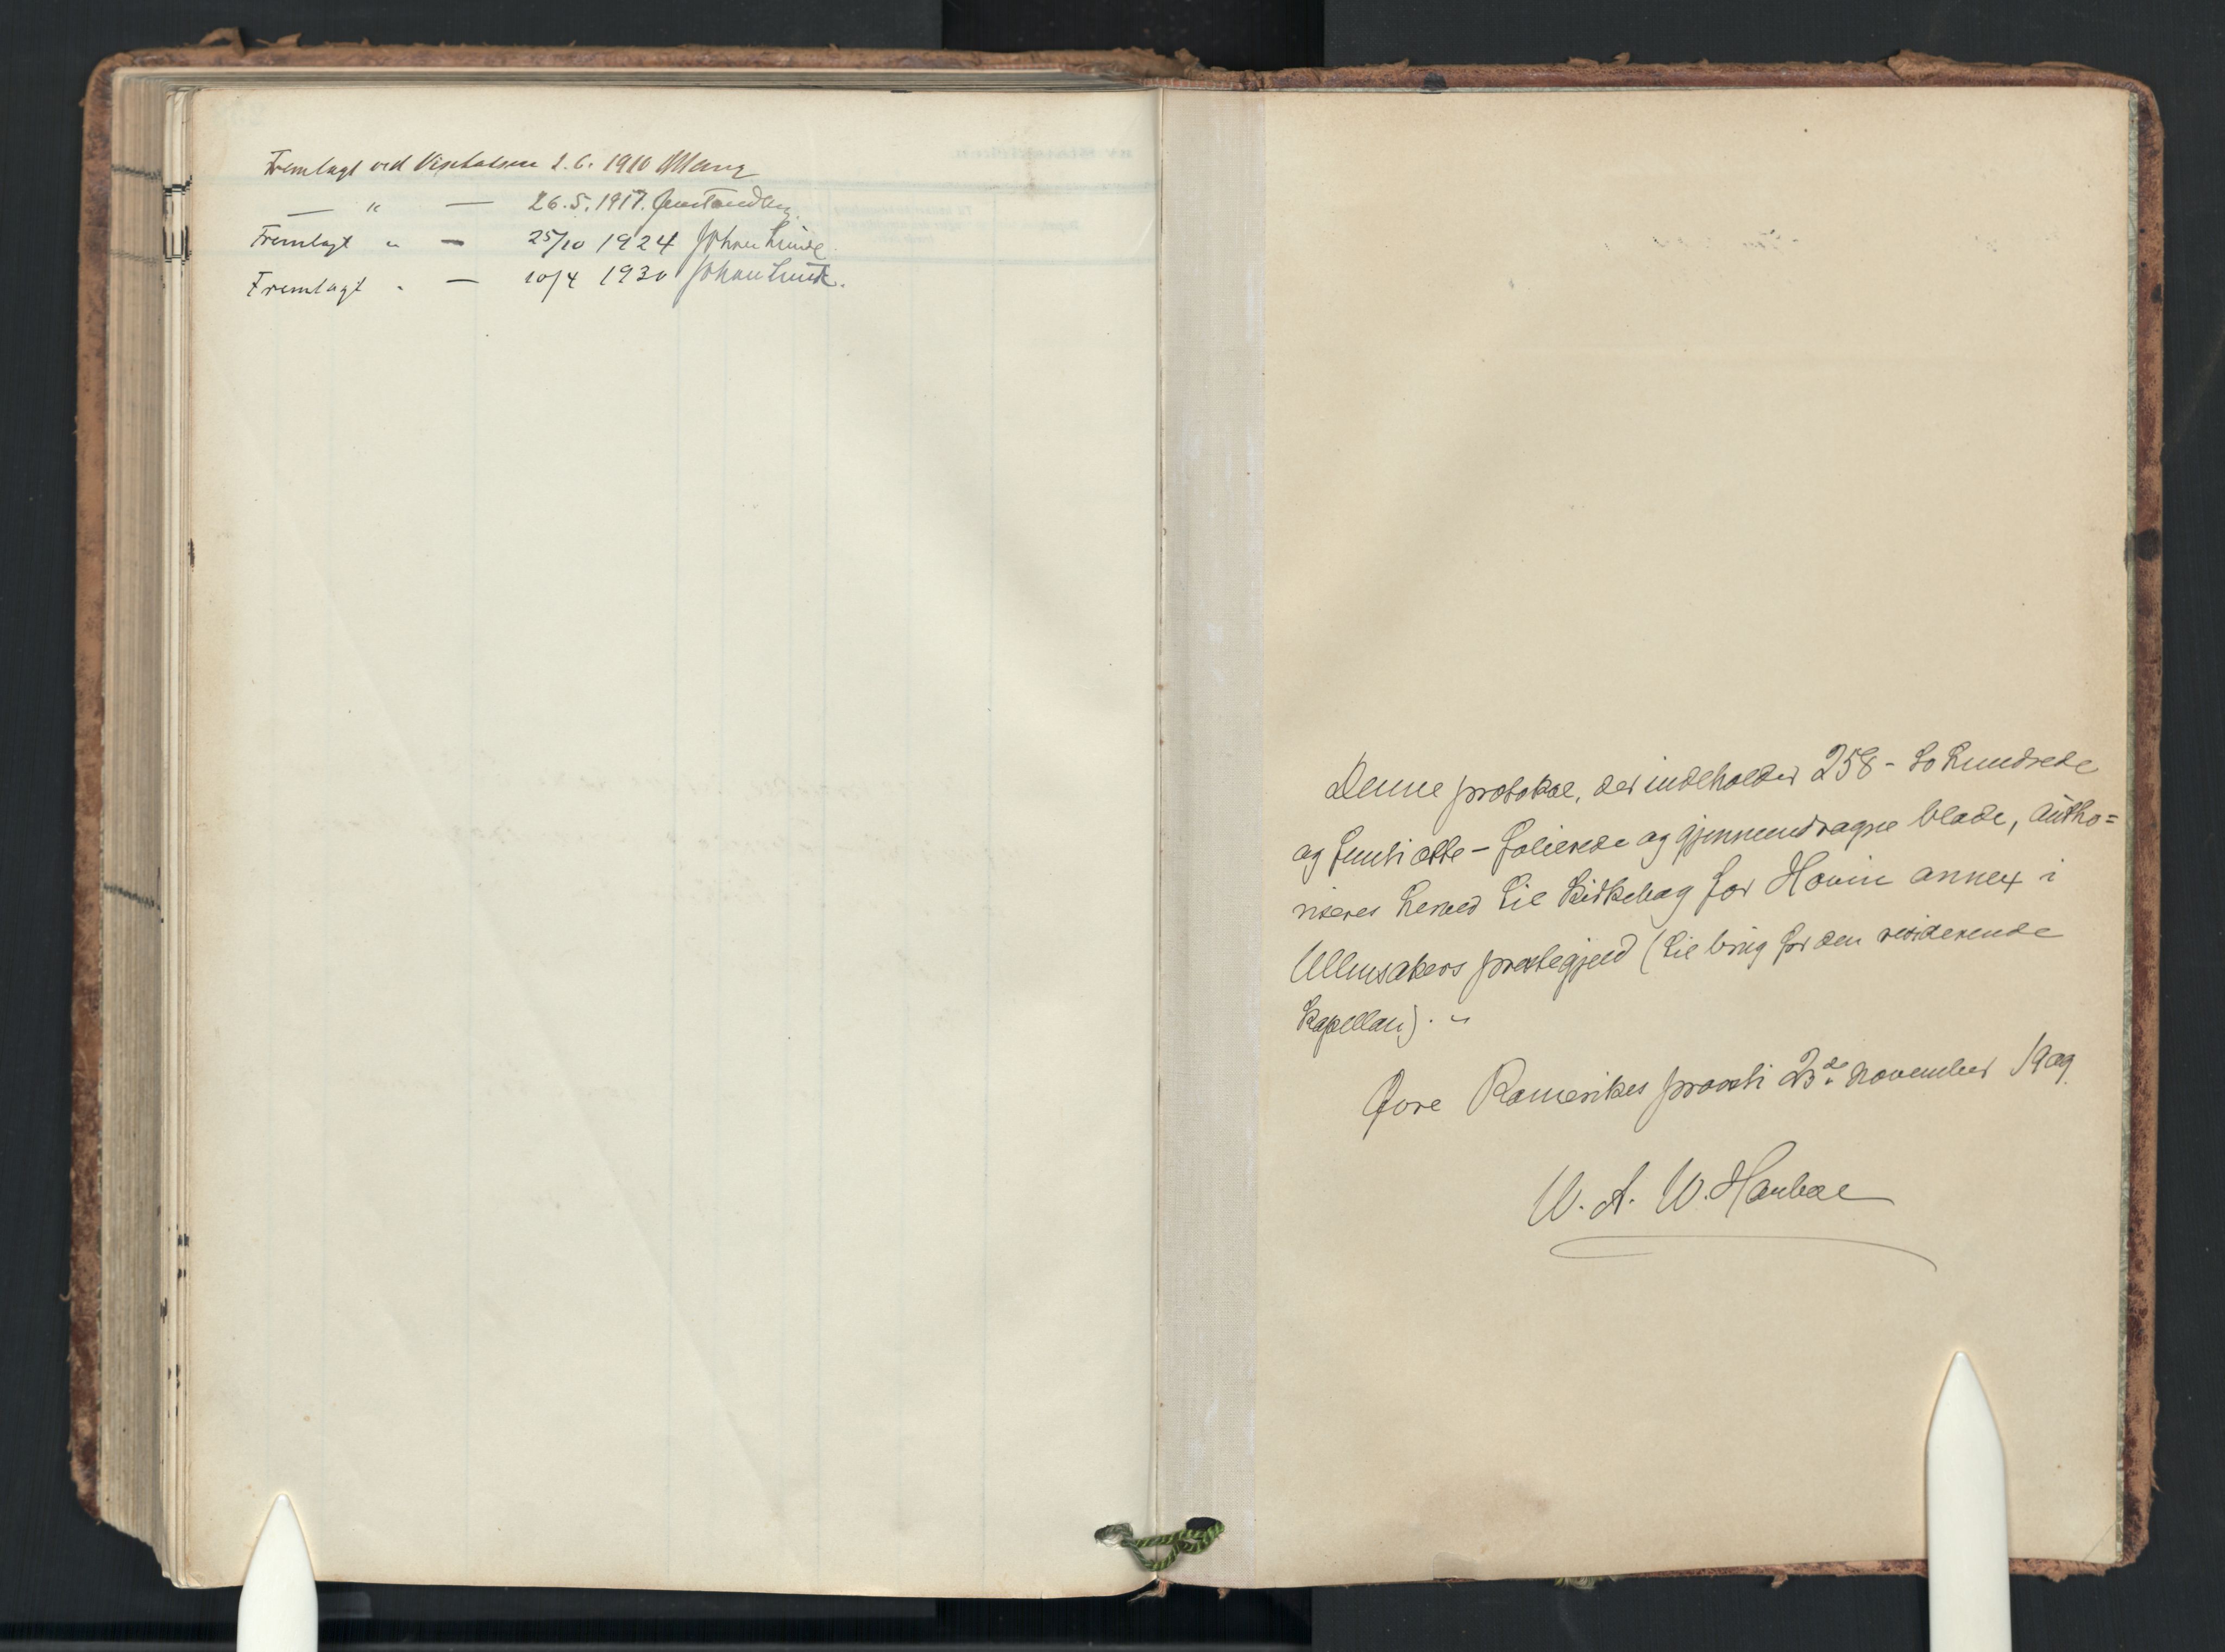 Fremlagt ved Visitatsen 2.6. 1910
— " — 26.5.1917. Jens Tandberg.
Fremlagt " — 25/10 1924 Johan Lunde.
Fremlagt " — 10/4 1930 Johan Lunde.
Denne protokol, der indeholder 258 - to hundrede
og femti otte - folierede og gjennemdragne blade, autho=
riseres herved til kirkebog for Hovin annex i
Ullensakers prestegjeld (til brug for den residerende
kapellan). "
Øvre Romerikes provsti 23de November 1909.
W. A. W. Harboe